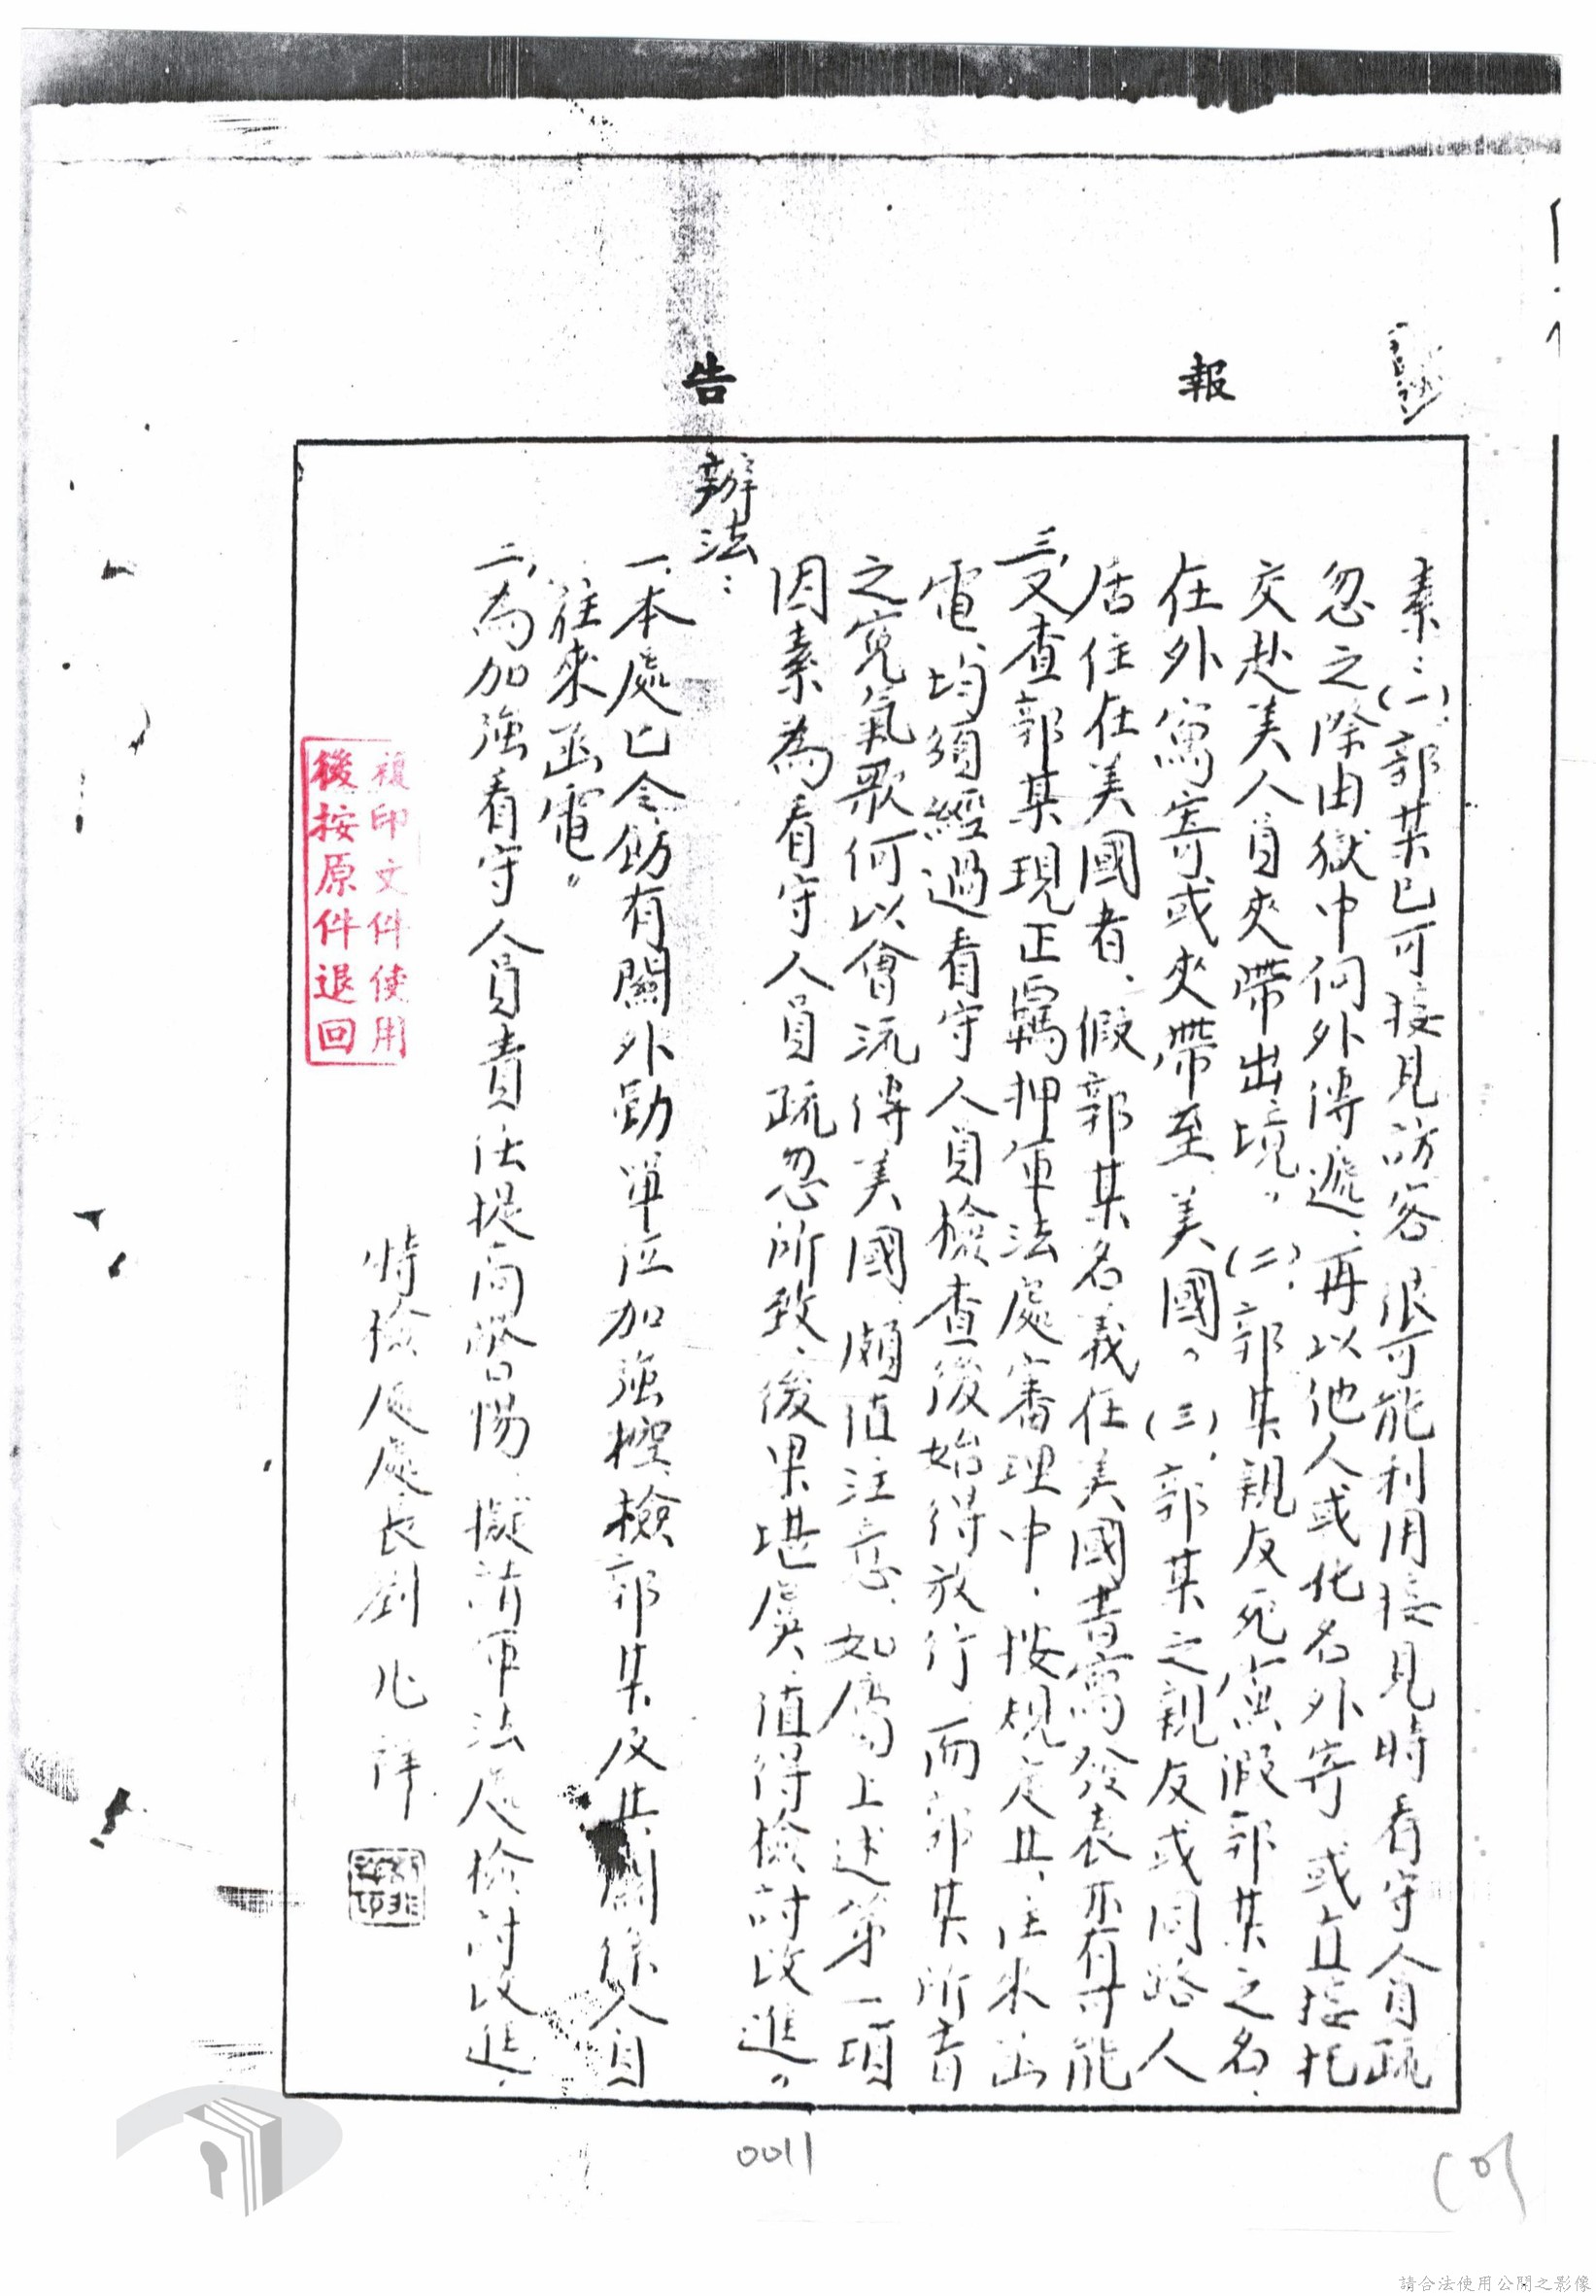 報告
素：(一)、郭某已可接見訪客很可能利用接見時看守人員疏
忽之際由獄中向外傳遞、再以他人或化名外寄或直接托
交赴美人員夾帶出境。(二)、郭某親友死黨假郭某之名、
在外寫寄或夾帶至美國。(三)、郭某之親友或同路人
居住在美國者、假郭某名義在美國書寫發表亦有可能
三、又查郭某現正羈押軍法處審理中、按規定其往來函
電、均須經過看守人員檢查後始得放行、而郭某所書
之冤氣歌何以會流傳美國、頗值注意、如屬上述第一項
因素為看守人員疏忽所致、後果堪虞、值得檢討改進。
辦法：
一、本處已令飭有關外勤單位加強控檢郭某及其關係人自
往來函電。
二、為加強看守人員責任提高警惕、擬請軍法處檢討改進、
特檢處處長劉兆祥
複印文件使用
後按原件退回
0011
請合法使用公開之影像